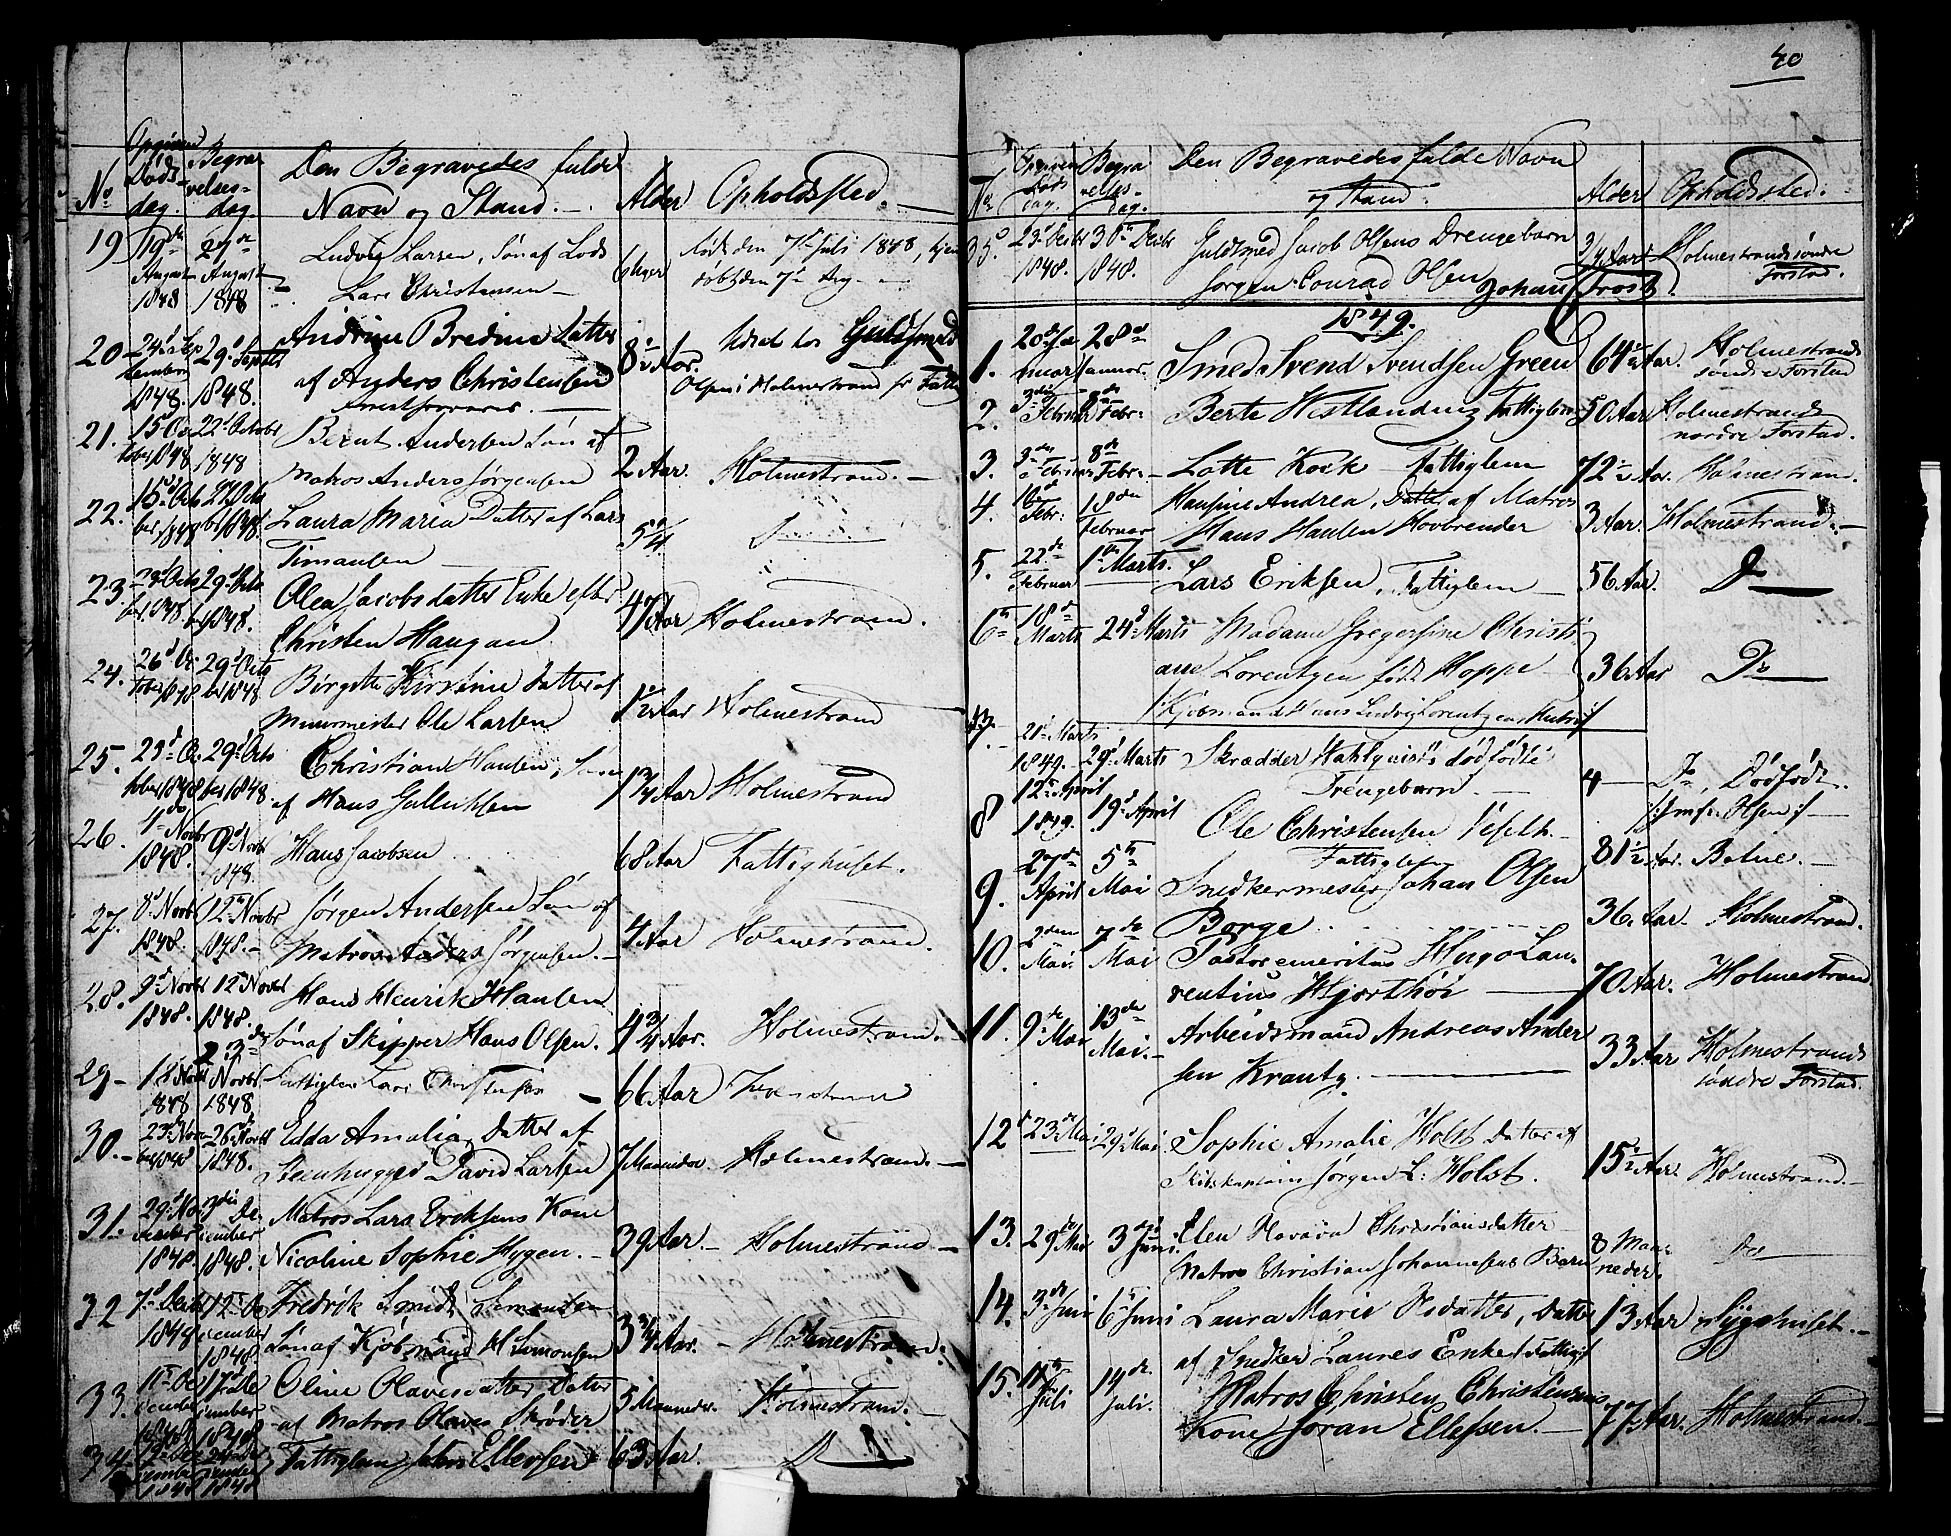 40
No
Opgiven Døds-dag.
Begravelses-dag.
Den Begravedes fulde Navn og Stand.
Alder
Opholdssted.
19
19de August 1848
27de August 1848
Ludvig Larsen, Søn af Lods
Lars Christensen
6 Uger
født den 7de Juli 1848, hjem
døbt den 7de Aug
20
24d September 1848.
29d Septbr 1848.
Andrine Bredine Datter
af Anders Christensen
8½ Aar.
hos Guldsmed
Olsen i Holmestrand
21.
15 October 1848
22d Octobr 1848
Bernt Andersen Søn af
Matros Anders Jørgensen
2 Aar.
Holmestrand.
22.
October 1848
Octbr 1848.
Laura Maria Datter af Lars
Timansen
23.
October 1848
29d October 1848.
Olea Jacobsdatter Enke efter
Christen Haugan
47 Aar
Holmestrand.
24.
26d October 1848
29d October 1848
Birgitte Kirstine Datter af
Muurmester Ole Larsen
1½ Aar
Holmestrand
25.
October 1848
29d October 1848
Christian Hansen, Søn
af Hans Gulliksen
1¾ Aar
Holmestrand
26.
4de Novbr 1848.
9d Novbr 1848.
Hans Jacobsen
68 Aar
Fattighuset.
27.
8d Novbr 1848.
12te Novbr 1848.
Jørgen Andersen Søn af
Matros Anders Jørgensen.
4 Aar
Holmestrand.
28.
9d Novbr 1848.
12te Novbr 1848.
Hans Henrik Hansen
Søn af Skipper Hans Olsen.
4¾ Aar.
Holmestrand.
29
18 Novbr 1848
23de Novbr 1848.
Fattiglem Lars
66 Aar
30.
23d November 1848
26d Novbr 1848.
Edda Amalia, Datter af
Steenhugger David Larsen
7 Maaneder.
Holmestrand.
31.
29d November 1848.
3die December 1848.
Matros Lars Eriksens Kone
Nicoline Sophie Hygen.
39 Aar.
Holmestrand
32
7d Decbr 1848
12te December 1848.
Fredrik Smidt Simonsen
Søn af Kjøbmand H Simonsen
3¾ Aar.
Holmestrand.
33.
11te December 1848
17de December 1848
Oline Olavesdatter Datter
af Matros Olaves Skrøder
5 Maaneder.
Holmestrand.
34.
December 1848
December 1848
Fattiglem Ellevsen
63 Aar.
No
Opgiven Døds dag.
Begravelses-dag.
Den Begravedes fulde Navn
og Stand.
Alder
Opholdssted.
35
23d Decbr 1848.
30te Decbr 1848.
Guldsmed Jacob Olsens Drengebarn
Jørgen Conrad Olsen
¾ Aar
Holmestrands søndre
Forstad.
1849.
1.
20de Januar
28de Januar
Smed Svend Svendsen Green
64½ Aar.
Holmestrands
søndre Forstad
2.
3die Februar
8de Febr:
Berte Fattiglem
50 Aar
Holmestrands
nordre Forstad.
3.
Februar
8de Febr.
Lotte Kock Fattiglem
72½ Aar.
Holmestrand.
4.
Febr:
18den Februar
Hansine Andrea, Datt af Matros
Hans Hansen Hovbrender
3 Aar.
Holmestrand.
5.
22de Februar
1ste Marts.
Lars Eriksen, Fattiglem
56 Aar.
Do
6te
18de Marts
24d Marts
Madame Gregersine Christi
ane Lorentzen født Hoppe
36 Aar
Do
7.
21d Marts 1849.
29d Marts
Skrædder Wahlqvists dødfødte
Drengebarn.
Do, Dødfødt.
8
12te April 1849.
19d April
Ole Christensen
Fattiglem
81½ Aar.
Botne.
9.
27de April
5te Mai
Snedkermester Johan Olsen
Borge
36. Aar.
Holmestrand.
10.
2den Mai.
7de Mai
Pastor emeritus Hugo Lau-
rentius Hjorthøi
70 Aar.
Holmestrand
11.
9de Mai
13de Mai.
Arbeidsmand Andreas Ander
sen Krantz.
33 Aar
Holmestrands
søndre Forstad.
12
23de Mai
29d Mai
Sophie Amalie Holst Datter af
Skibskaptain Jørgen L. Holst.
15½ Aar.
Holmestrand.
13.
29de Mai
3die Juni.
Elen Christiansdatter
Matros Christian Johannesens Barn
8 Maa-
neder.
do
14.
3de Juni
6te Juni
Laura Marie Olsdatter, Datter
af Snedker Laures Enke
13 Aar
Sygehuset.
15.
Juli
14de Juli.
Matros Christen Christensens
Kone Joran Ellefsen.
77 Aar.
Holmestrand.